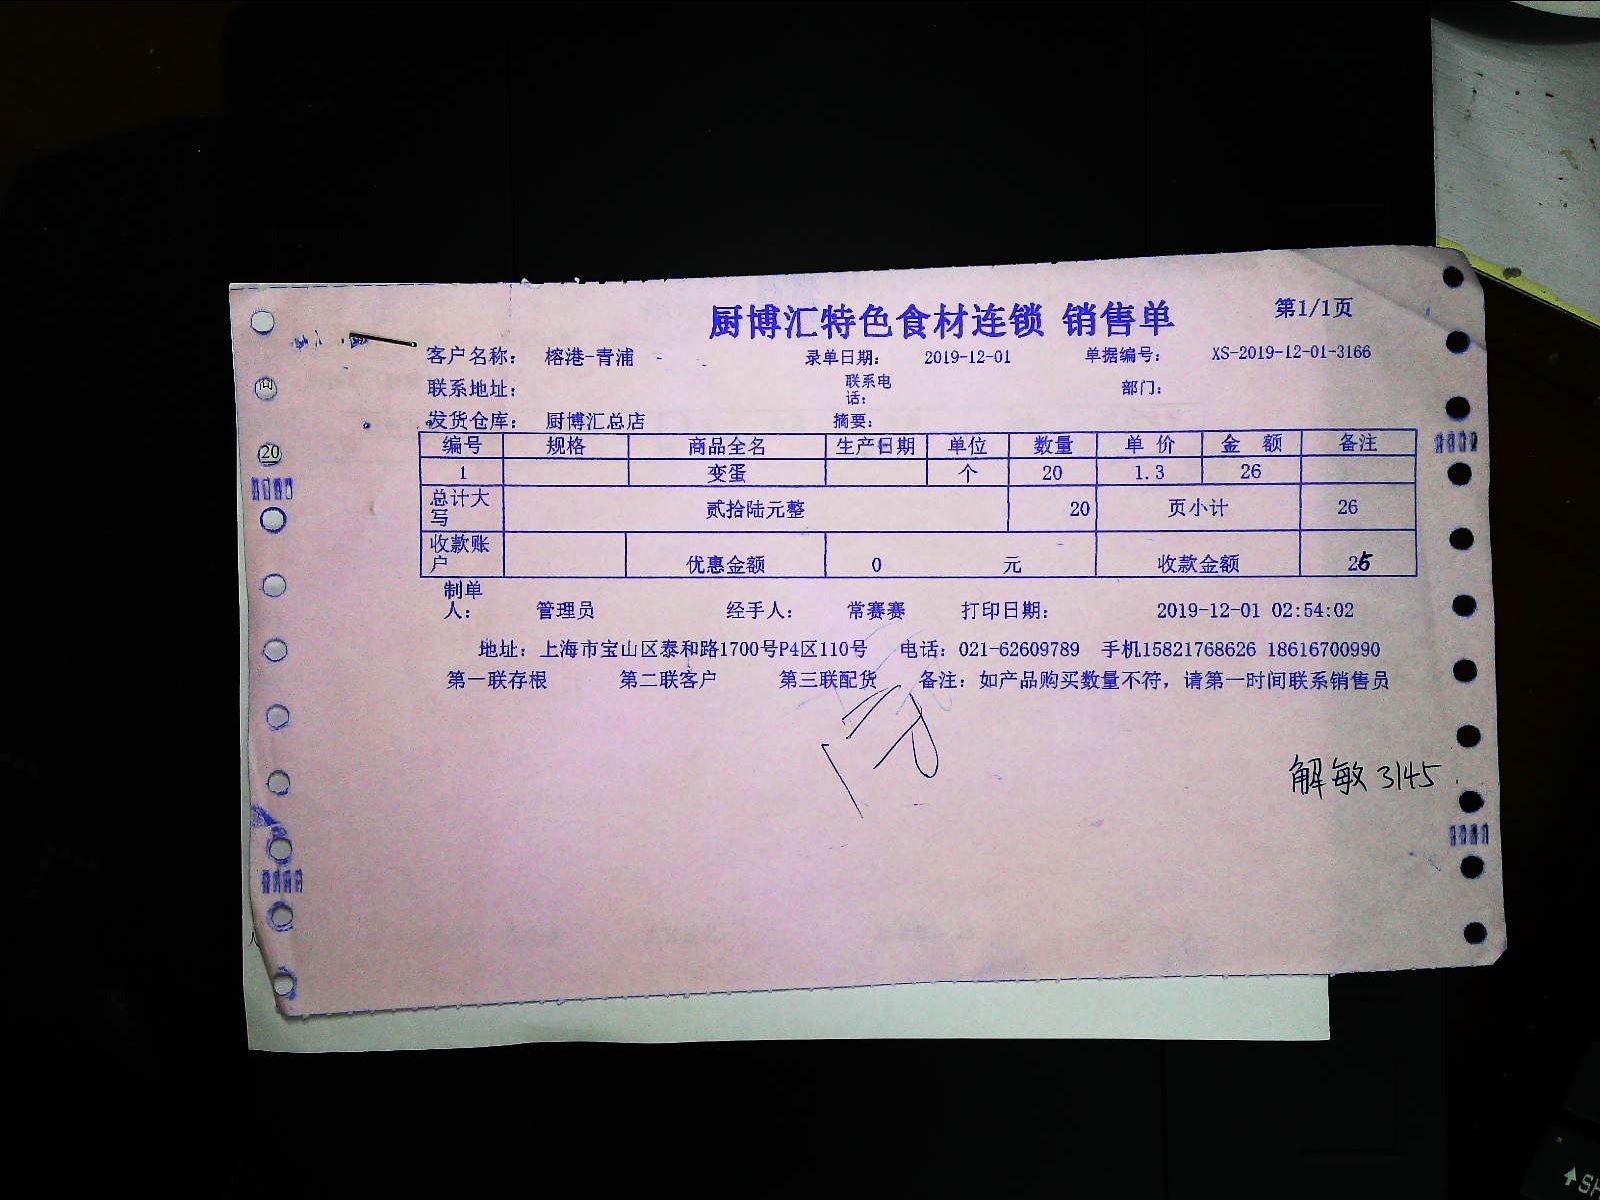 厨博汇特色食材连锁 销售单 第1/1页
客户名称： 榕港-青浦 录单日期： 2019-12-01 单据编号： XS-2019-12-01-3166
联系地址： 联系电话： 部门：
发货仓库： 厨博汇总店 摘要：
编号 规格 商品全名 生产日期 单位 数量 单 价 金 额 备注
1 变蛋 个 20 1.3 26
总计大写 贰拾陆元整 20 页小计 26
收款账户 优惠金额 0 元 收款金额 25
制单人： 管理员 经手人： 常赛赛 打印日期： 2019-12-01 02:54:02
地址：上海市宝山区泰和路1700号P4区110号 电话：021-62609789 手机15821768626 18616700990
第一联存根 第二联客户 第三联配货 备注：如产品购买数量不符，请第一时间联系销售员
解敏 3145